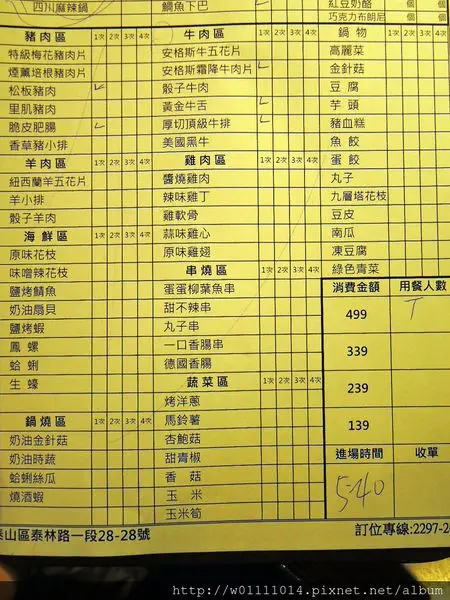 四川麻辣鍋 鯛魚下巴 紅豆奶酪 個 個
巧克力布朗尼 個 個
豬肉區 1次 2次 3次 4次
特級梅花豬肉片
煙薰培根豬肉片
松板豬肉
里肌豬肉
脆皮肥腸
香草豬小排
羊肉區 1次 2次 3次 4次
紐西蘭羊五花片
羊小排
骰子羊肉
海鮮區 1次 2次 3次 4次
原味花枝
味噌辣花枝
鹽烤鯖魚
奶油扇貝
鹽烤蝦
鳳螺
蛤蜊
生蠔
鍋燒區 1次 2次 3次 4次
奶油金針菇
奶油時蔬
蛤蜊絲瓜
燒酒蝦
牛肉區 1次 2次 3次 4次
安格斯牛五花片
安格斯霜降牛肉片
骰子牛肉
黃金牛舌
厚切頂級牛排
美國黑牛
雞肉區 1次 2次 3次 4次
醬燒雞肉
辣味雞丁
雞軟骨
蒜味雞心
原味雞翅
串燒區 1次 2次 3次 4次
蛋蛋柳葉魚串
甜不辣串
丸子串
一口香腸串
德國香腸
蔬菜區 1次 2次 3次 4次
烤洋蔥
馬鈴薯
杏鮑菇
甜青椒
香菇
玉米
玉米筍
鍋物 1次 2次 3次 4次
高麗菜
金針菇
豆腐
芋頭
豬血糕
魚餃
蛋餃
丸子
九層塔花枝
豆皮
南瓜
凍豆腐
綠色青菜
消費金額 用餐人數
499
339
239
139
進場時間 收單
5:40
泰山區泰林路一段28-28號 訂位專線:2297-2
http://w01111014.pixnet.net/album